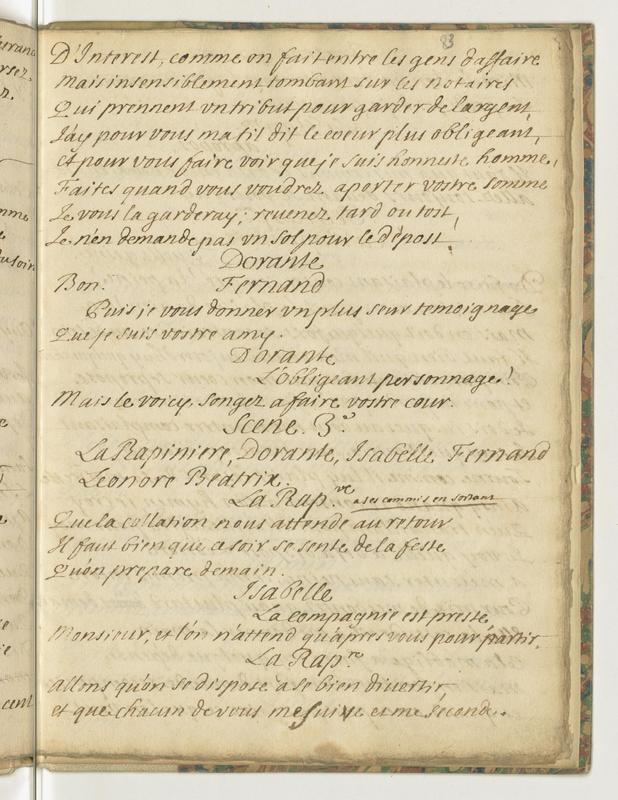 83
D'Interest, comme on fait entre les gens d'affaire
Mais insensiblement tombant sur les Notaires
Qui prennent vn tribut pour garder de largent,
J'ay pour vous ma til dit le coeur plus obligeant,
et pour vous faire voir que je suis honneste homme,
Faites quand vous voudrez aporter vostre somme
Je vous la garderay; reuenez tard ou tost,
Je n'en demande pas vn sol pour le dépost.
Dorante
Bon.
Fernand
Puis je vous donner vn plus seur temoignage
Que je suis vostre amy.
Dorante
L'obligeant personnage!
Mais le voicy, songez a faire vostre cour.
Scene. 3.e
La Rapiniere, Dorante, Isabelle Fernand
Leonore Beatrix.
La Rap.re a ses commis en sortant
Que la collation nous attende au retour
Il faut bien que ce soir se sente de la feste
Qu'on prepare demain.
Isabelle
La compagnie est preste,
Monsieur, et l'on n'attend qu'apres vous pour partir.
La Rap.re
allons qu'on se dispose a se bien diuertir,
et que chacun de vous me suiue et me seconde.